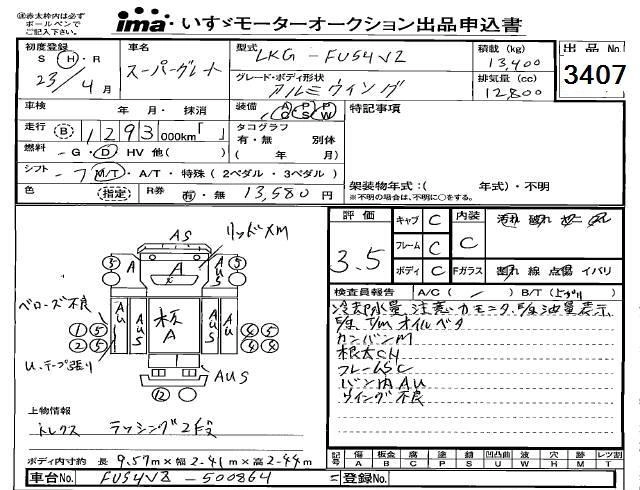 ※赤太枠内は必ず
ボールペンで
ご記入下さい。
ima いすゞモーターオークション出品申込書
初度登録 S・H・R 23/4月
車名 スーパーグレート
型式 LKG-FU54VZ
グレード・ボディ形状 アルミウイング
積載(kg) 13,400
排気量(cc) 12,800
出品No. 3407
車検 年・月・抹消
装備 AC PS PW
特記事項
走行 (B) 1,293,000km「 」
タコグラフ 有・無 別体 ( 年 月)
燃料 -G・D・HV 他( )
シフト -7 M/T・A/T・特殊(2ペダル・3ペダル)
色 (指定) R券 有・無 13,580円
架装物年式:( 年式)・不明
※不明の場合は、不明に○をする。
評価 3.5
キャブ C
フレーム C
ボディ C
内装 C
汚れ 破れ
Fガラス 線 点傷 イバリ
検査員報告 A/C( ) B/T( )
冷却水量注意 カモニタ、E/g油量表示
E/g、T/M オイルベタ
カンバンM
根太CH
フレームSC
バン内AU
ウイング不良
AS
リッドXM
A
AUS
ベローズ不良
板A
U、テープ張り
AUS
上物情報
トレクス ラッシング2段
ボディ内寸約 長 9.57m×幅 2.41m×高 2.44m
記号 傷A 板金B 腐C 塗P 錆S 凹凸曲U 波W 穴H 跡M レツ割T
車台No. FU54VZ-500864
=登録No.